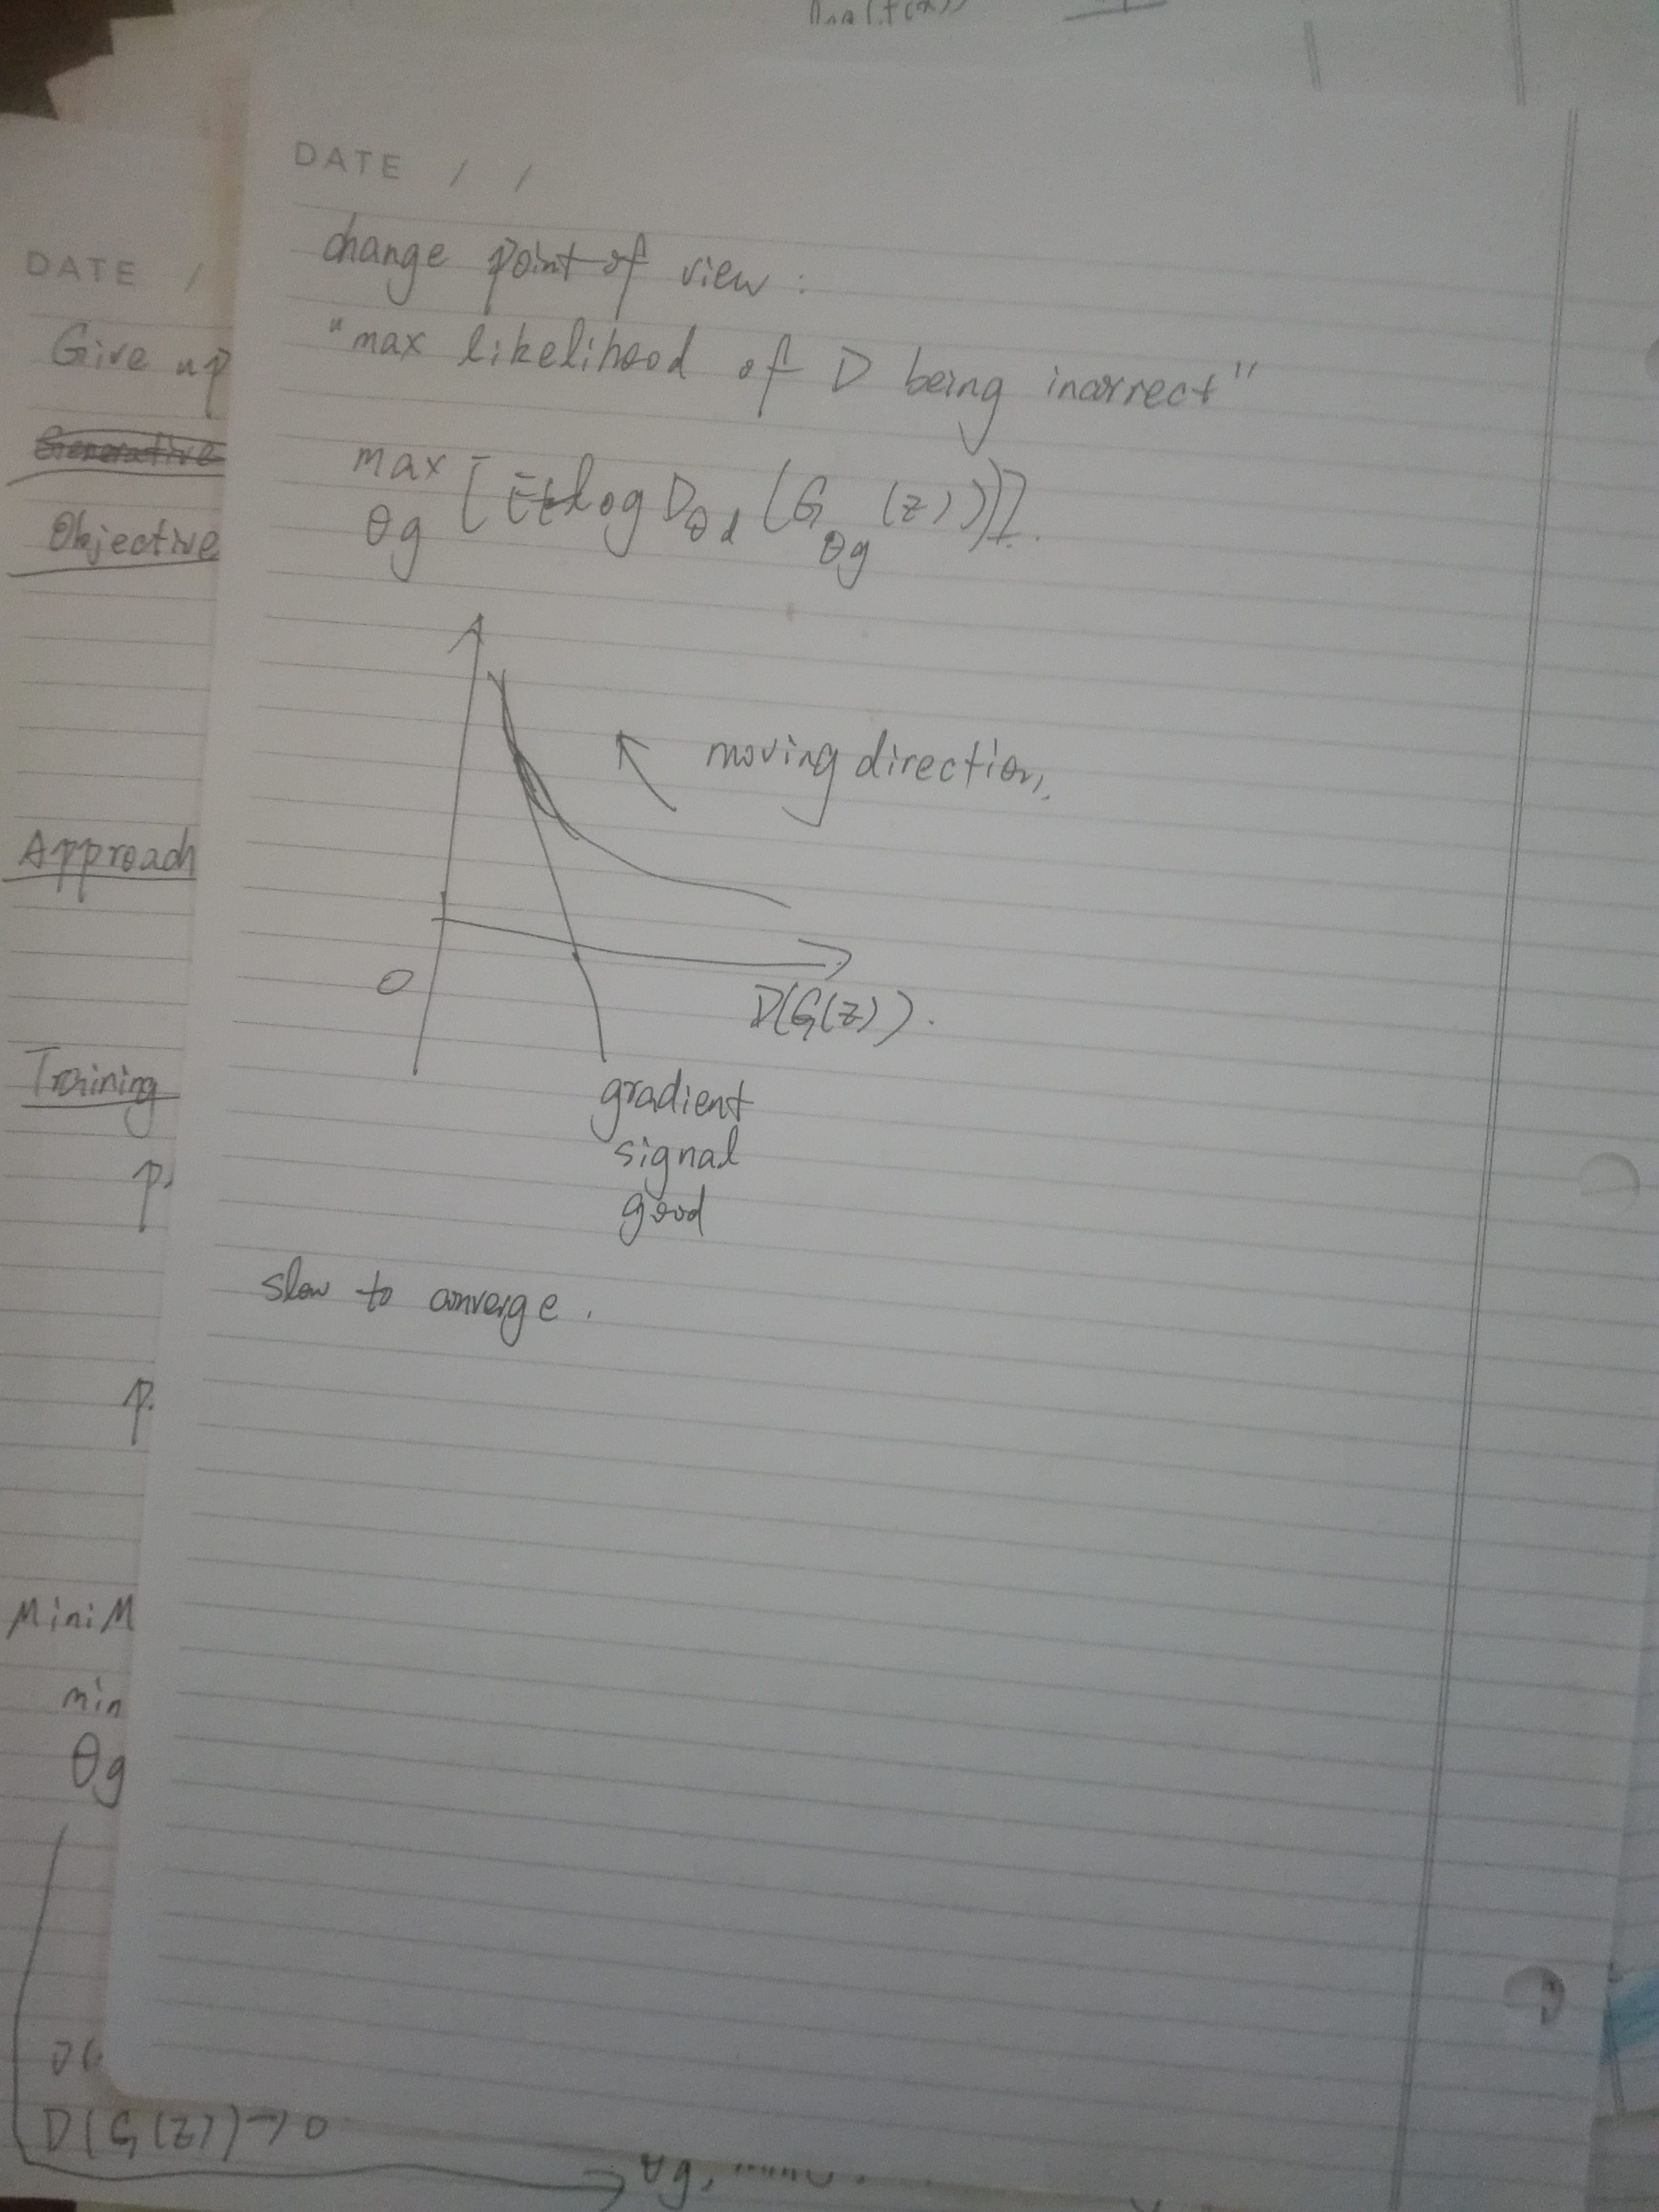 DATE / /
change point of view :
"max likelihood of D being incorrect"
max [E log D_θd (G_θg (z))].
θg
moving direction.
O
D(G(z)).
gradient
signal
good
slow to converge.
DATE /
Give up
Generative
Objective
Approach
Training
p.
p.
MiniM
min
θg
D(G(z))→0